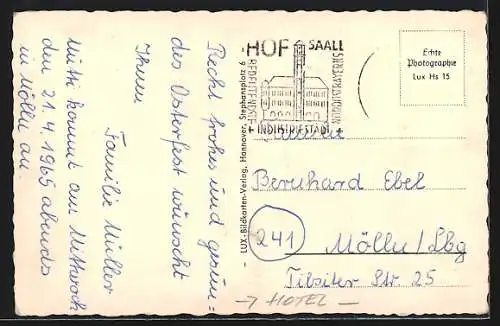 Recht frohes und gesun=
des Osterfest wünscht
Ihnen
Familie Müller
Mutti kommt am Mittwoch
den 21. 4. 1965 abends
in Mölln an.
LUX-Bildkarten-Verlag, Hannover, Stephansplatz 6
HOF SAALE
BEDEUTENDSTE
BAYERNS
INDUSTRIESTADT
Echte
Photographie
Lux Hs 15
Bernhard Ebel
241 Mölln/Lbg
Tilsiter Str. 25
→ HOTEL —